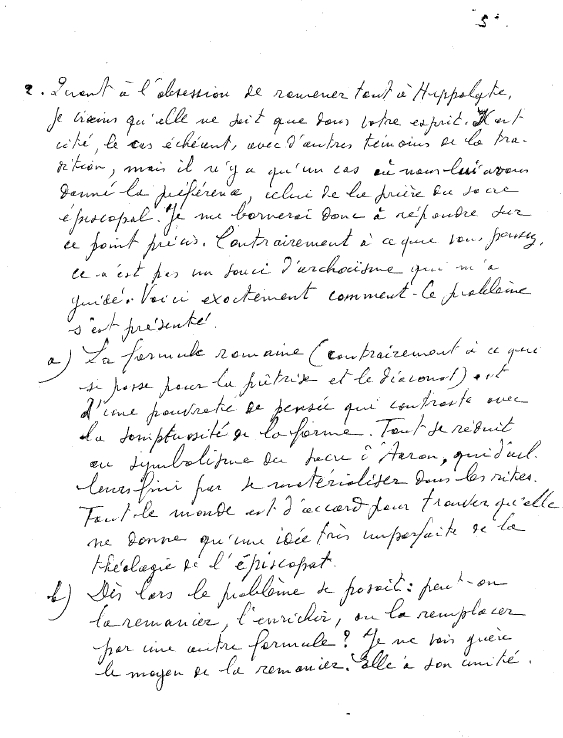 5.
2. Quant à l'obsession de ramener tout à Hippolyte,
je crains qu'elle ne soit que dans votre esprit. Il est
cité, le cas échéant, avec d'autres témoins de la tra-
dition, mais il n'y a qu'un cas où nous lui avons
donné la préférence, celui de la prière du sacre
épiscopal. Je me bornerai donc à répondre sur
ce point précis. Contrairement à ce que vous pensez,
ce n'est pas un souci d'archaïsme qui m'a
guidé. Voici exactement comment le problème
s'est présenté.
a) La formule romaine (contrairement à ce qui
se passe pour la prêtrise et le diaconat) est
d'une pauvreté de pensée qui contraste avec
la somptuosité de la forme. Tout se réduit
au symbolisme du sacre d'Aaron, qui d'ail-
leurs fini par se matérialiser dans les rites.
Tout le monde est d'accord pour trouver qu'elle
ne donne qu'une idée très imparfaite de la
théologie de l'épiscopat.
b) Dès lors le problème se posait : peut-on
la remanier, l'enrichir, ou la remplacer
par une autre formule ? Je ne vois guère
le moyen de la remanier. Elle a son unité.